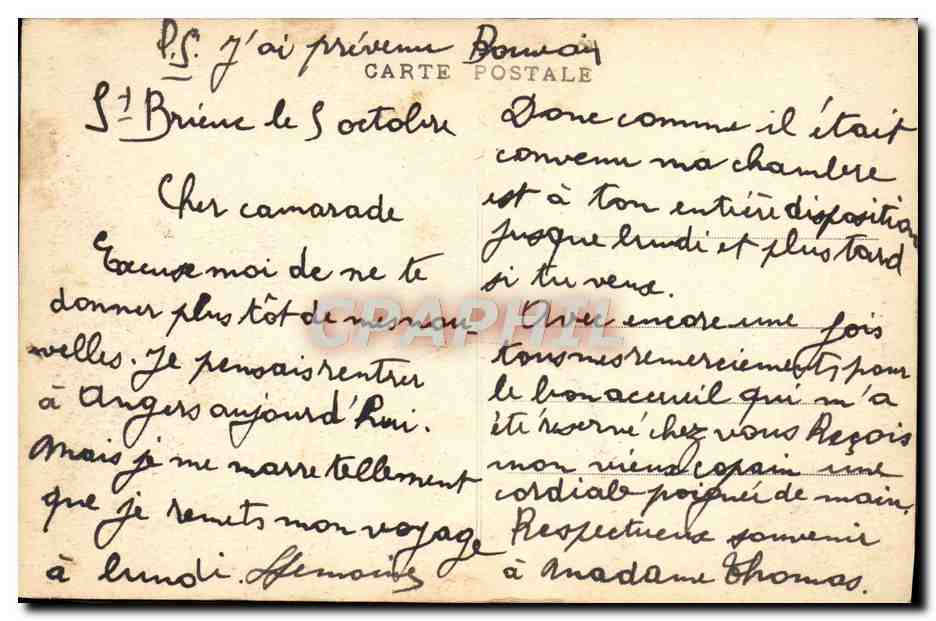 P.S. J'ai prévenu
CARTE POSTALE
St Brieuc le 5 octobre
Cher camarade
Excuse moi de ne te
donner plus tôt de mes nou-
velles. Je pensais rentrer
à Angers aujourd'hui.
Mais je me marre tellement
que je remets mon voyage
à lundi.
Donc comme il était
convenu ma chambre
est à ton entière disposition
jusque lundi et plus tard
si tu veux.
CPAPHIL
Avec encore une fois
tous mes remerciements, pour
le bon accueil qui m'a
été réservé chez vous Reçois
mon vieux copain une
cordiale poignée de main.
Respectueux souvenir
à Madame Thomas.